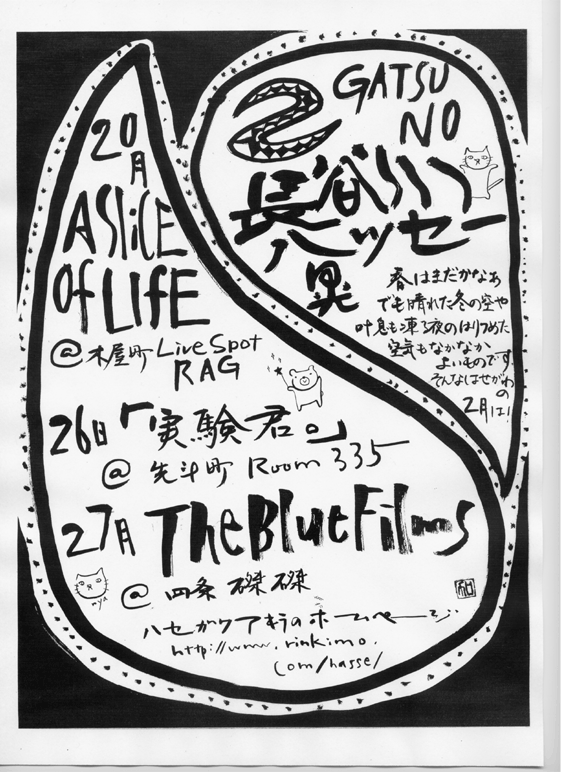 2 GATSU
NO
長谷川
ハッセー
晃
春はまだかなぁ
でも晴れた冬の空や
吐息も凍る夜のはりつめた
空気もなかなか
よいものです。
そんなはせがわ
の
2月は!
20
月
A SliCE
Of LIfE
@ 木屋町 Live Spot
RAG
26日「実験君。」
@ 先斗町 Room 335
27月 The Blue Films
@ 四条 磔磔
nya
ハセガワアキラのホームページ
http://www.rinkimo.
com/hasse/